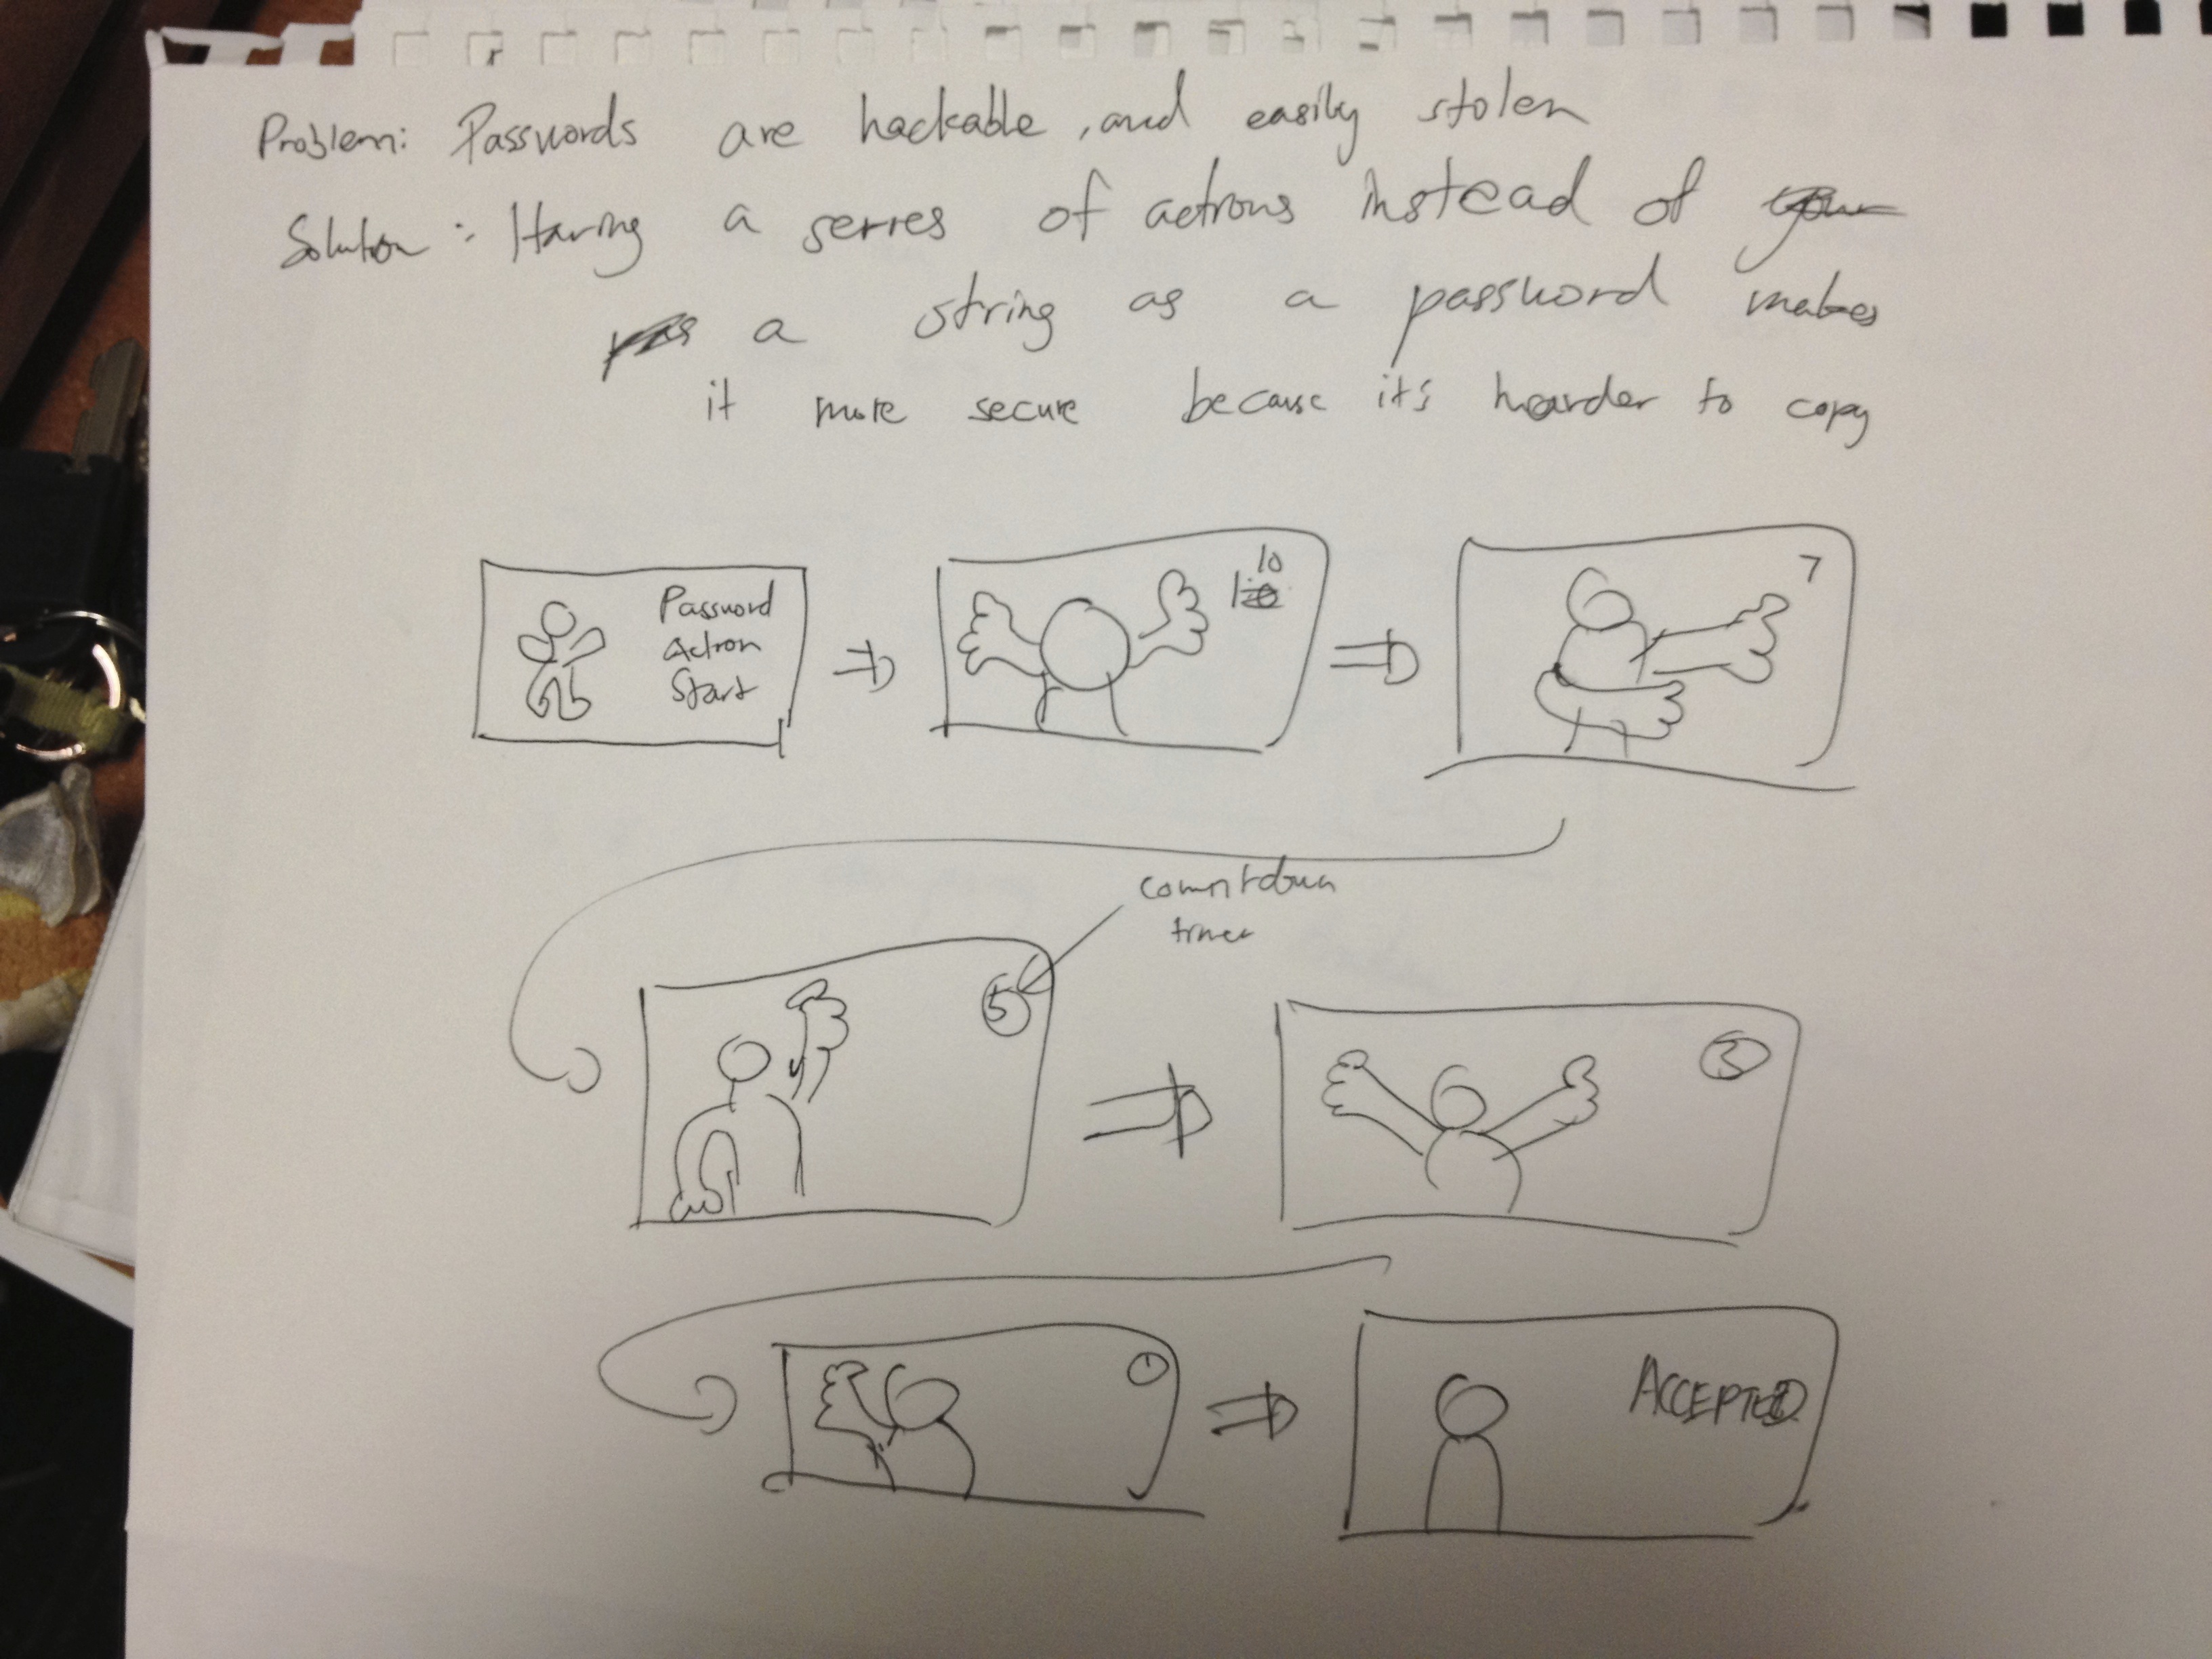 Problem: Passwords are hackable, and easily stolen
Solution: Having a series of actions instead of
a string as a password makes
it more secure because it's harder to copy
Password
Action
Start
10
7
countdown
timer
5
3
1
ACCEPTED